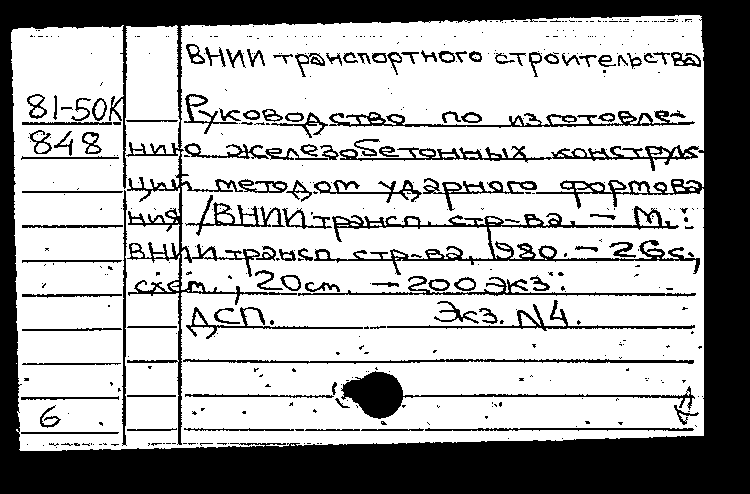 ВНИИ транспортного строительства
81-50К Руководство по изготовле-
848 нию железобетонных конструк-
ций методом ударного формова
ния /ВНИИ трансп. стр-ва. – М.:
ВНИИ трансп. стр-ва, 1980. – 26 с.,
схем.; 20 см. – 200 экз.
ДСП. Экз. N4.
6